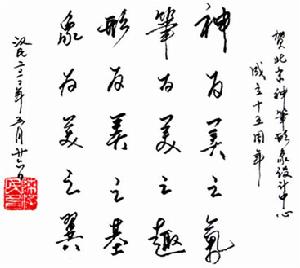 贺北京神筆形象设计中心
成立十五周年
神为美之氣
筆为美之趣
形为美之基
象为美之翼
年五月廿六日